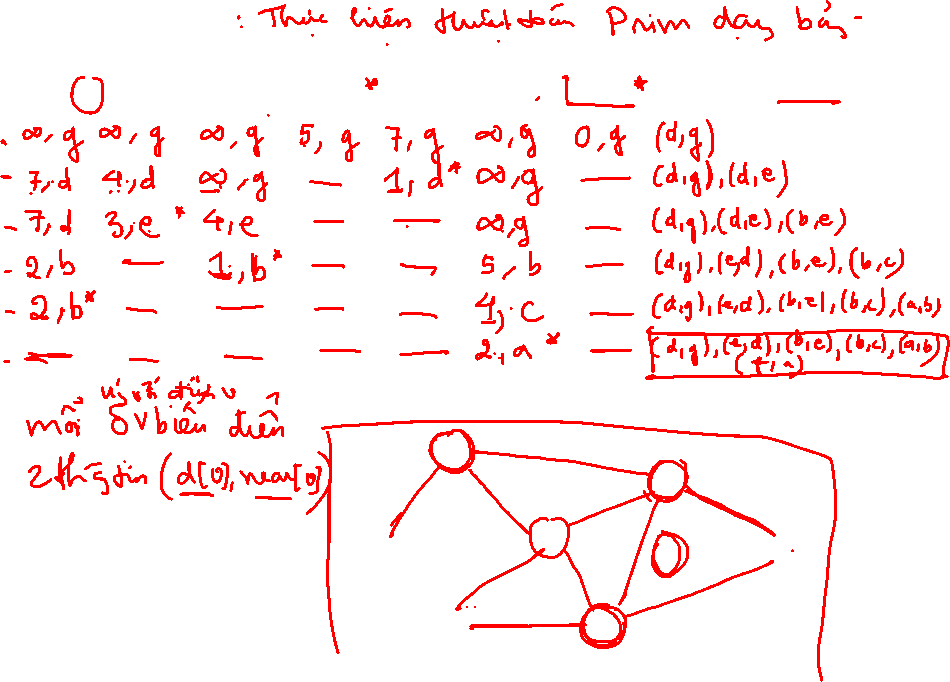 : Thực hiện thuật toán Prim dạng bảng
*
*
- ∞, g ∞, g ∞, g 5, g 7, g ∞, g 0, g (d,g)
- 7, d 4, d ∞, g — 1, d* ∞, g — (d,g),(d,e)
- 7, d 3, e* 4, e — — ∞, g — (d,g),(d,e),(b,e)
- 2, b — 1, b* — — 5, b — (d,g),(e,d),(b,e),(b,c)
- 2, b* — — — — 4, c — (d,g),(e,d),(b,e),(b,c),(a,b)
- — — — — — 2, a* — (d,g),(e,d),(b,e),(b,c),(a,b)
(f,a)
ứng với đỉnh v
mỗi ô v biểu diễn
2 thông tin (d[v], near[v])